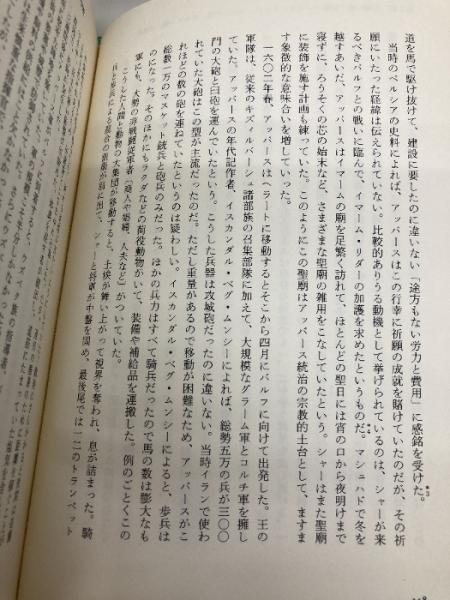 道を馬で駆け抜けて、建設に要したのに違いない「途方もない労力と費用」に感銘を受けた。
当時のペルシアの史料によれば、アッバースはこの行幸に祈願の成就を賭けていたのだが、その祈
願にいたった経緯は伝えられていない。比較的ありうる動機として挙げられているのは、シャーが来
るべきバルフとの戦いに臨んで、イマーム・リダーの加護を求めたというものだ。マシュハドで冬を
越すあいだ、アッバースはイマームの廟を足繁く訪れて、ほとんどの聖日には宵の口から夜明けまで
寝ずに、ろうそくの芯の始末など、さまざまな聖廟の雑用をこなしていたという。シャーはまた聖廟
に装飾を施す計画も練っていた。このようにこの聖廟はアッバース統治の宗教的土台として、ますま
す象徴的な意味合いを増していった。
一六〇二年春、アッバースはヘラートに移動するとそこから四月にバルフに向けて出発した。王の
軍隊は、従来のキズィルバーシュ諸部族の召集部隊に加えて、大規模なグラーム軍とコルチ軍を擁し
ていた。アッバースの年代記作者、イスカンダル・ベグ・ムンシーによれば、総勢五万の兵が三〇〇
門の大砲と臼砲を運んでいたという。こうした兵器は攻城砲だったのに違いない。当時イランで使わ
れていた大砲はこの型が主流だったのだ。ただし重量があるので移動が困難なため、アッバースがこ
れほどの数の砲を連ねていたというのは疑わしい。イスカンダル・ベグ・ムンシーによると、歩兵は
総数一万のマスケット銃兵と砲兵のみだった。ほかの兵力はすべて騎兵だったので馬の数は膨大なも
のになった。そのほかにもラクダなどの荷役動物がいて、装備や補給品を運搬した。例のごとくこの
軍にも、大勢の非戦闘従軍者（商人や娼婦、人夫など）がついていた。
こうした人間と動物の大集団が移動すると、土埃が舞い上がって視界を奪われ、息が詰まった。騎
兵と歩兵による混合の前衛が前に出て、シャーと将軍が中軍を固め、最後尾では一二のトランペット